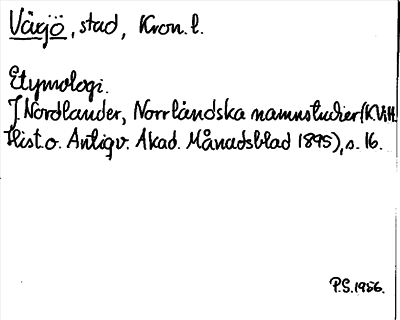 Växjö, stad, Kron. l.
Etymologi.
J Nordlander, Norrländska namnstudier (K. Vitt.
Hist. o. Antiqv. Akad. Månadsblad 1895), s. 16.
P.S. 1956.